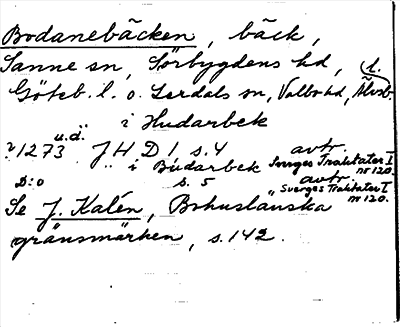 Bodanebäcken, bäck,
Sanne sn, Sörbygdens hd,
Göteb. l. o. Lerdals sn, Valbo hd, Älvsb. l.
i Hudarbek
u.ä.
? 1273 JHD 1 s. 4 avtr.
Sveriges Traktater I nr 120.
D:o i Budarbek s. 5 avtr.
Sverges Traktater I nr 120.
Se J. Kalén, Bohuslänska
gränsmärken, s. 142.